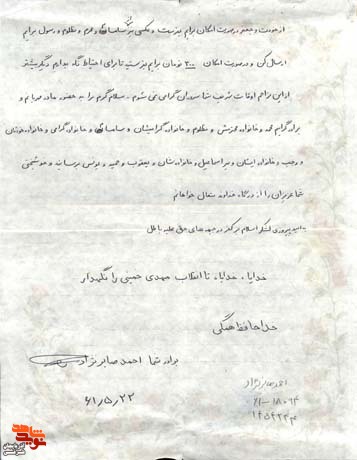 از خودت و جعفر در صورت امکان برایم بفرست و عکسی نیز و محرم و مظلوم و رسول برایم
ارسال کن و در صورت امکان ۳۰۰ تومان برایم بفرستید تا برای احتیاط نگه بدارم دیگر بیشتر
از این مزاحم اوقات شریف شما سروران گرامی نمی شوم. سلام گرم را به حضور مادر مهربانم و
برادر گرامیم و خانواده محترمش و مظلوم و خانواده گرامیشان و و خانواده گرامی و خانواده
و رجب و خانواده ایشان و میراسماعیل و خانواده شان و یعقوب و حمید و یونس برسانید و خوشبختی
شما عزیزان را از درگاه خداوند متعال خواهانم
به امید پیروزی لشکر اسلام بر کفر در جبهه های حق علیه باطل
خدایا، خدایا، تا انقلاب مهدی خمینی را نگهدار
خداحافظ همگی
برادر شما احمد صابر نژاد
۶۱/۵/۲۲
احمد صابر نژاد